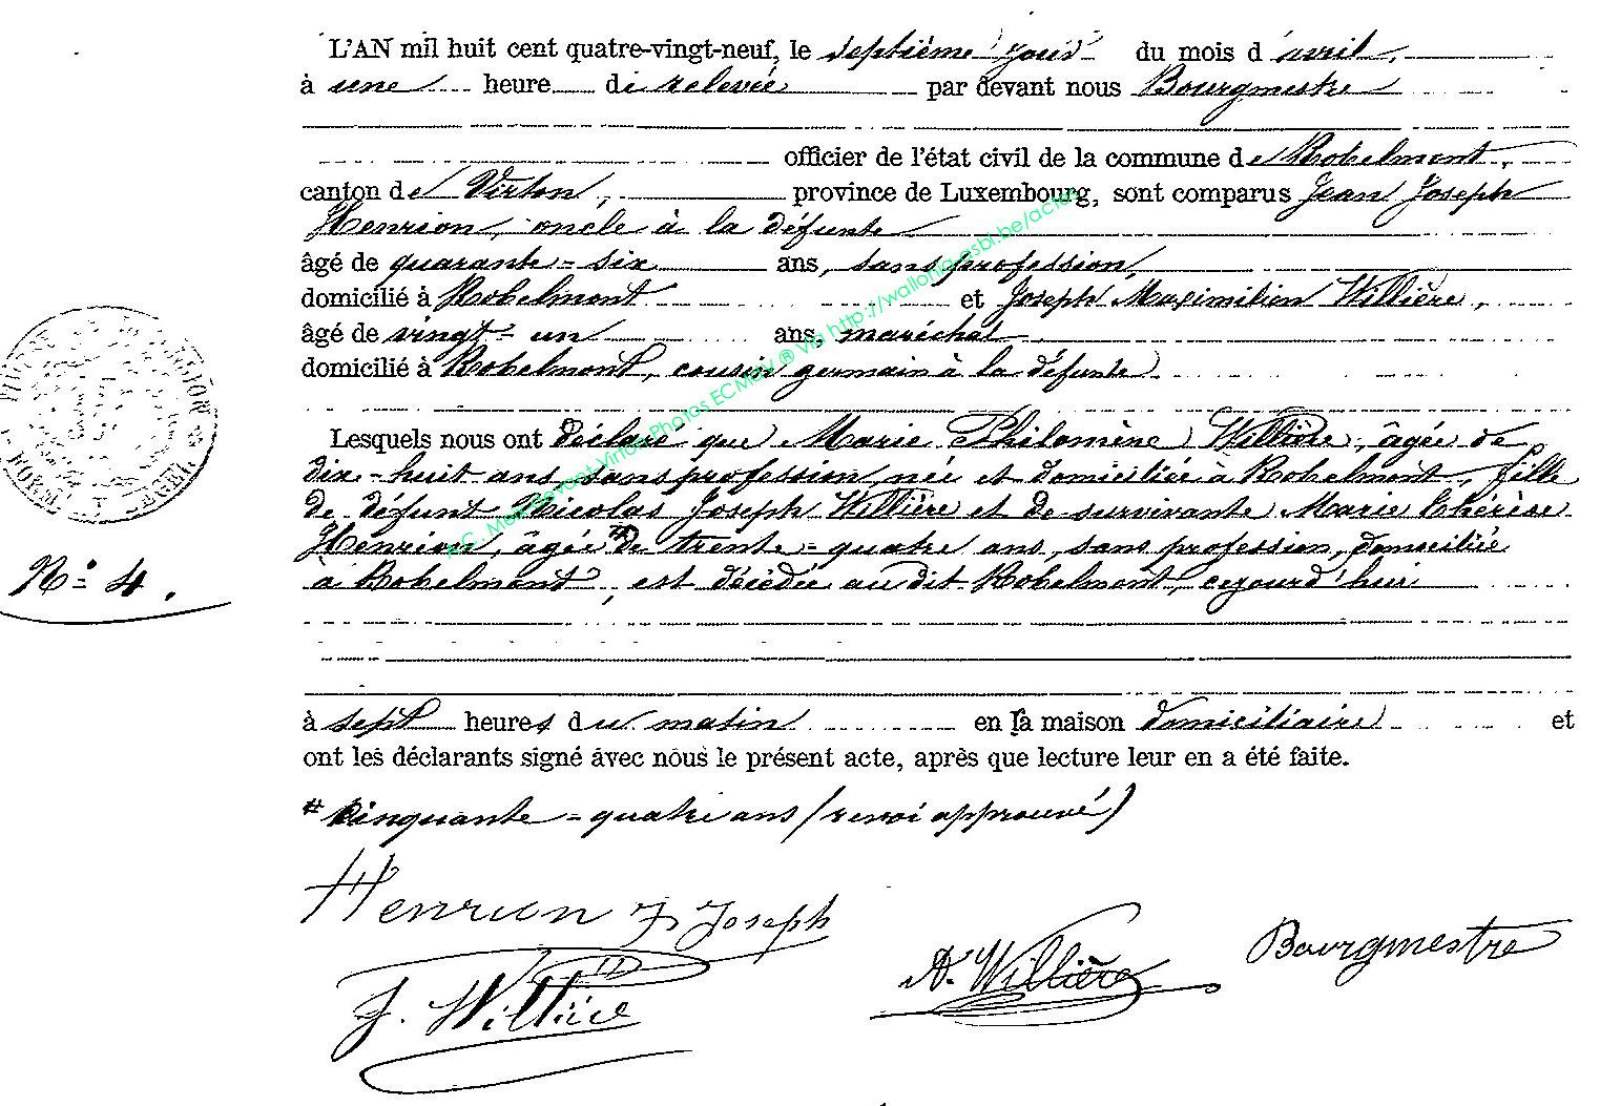 L'AN mil huit cent quatre-vingt-neuf, le septième jour du mois d'avril,
à une heure de relevée par devant nous Bourgmestre
officier de l'état civil de la commune de Robelmont,
canton de Virton, province de Luxembourg, sont comparus Jean Joseph
Henrion, oncle à la défunte
âgé de quarante-six ans, sans profession,
domicilié à Robelmont et Joseph Maximilien Willière,
âgé de vingt-un ans, maréchal
domicilié à Robelmont, cousin germain à la défunte
Lesquels nous ont déclaré que Marie Philomène Willière, âgée de
dix-huit ans, sans profession, née et domiciliée à Robelmont, fille
de défunt Nicolas Joseph Willière et de survivante Marie Thérèse
Henrion, âgée # de trente-quatre ans, sans profession, domiciliée
à Robelmont, est décédée au dit Robelmont, cejourd'hui
N° 4.
à sept heures du matin en la maison domiciliaire et
ont les déclarants signé avec nous le présent acte, après que lecture leur en a été faite.
# Cinquante-quatre ans (renvoi approuvé)
Henrion J Joseph
J. Willière
A. Willière Bourgmestre
via http://wallonia.asbl.be/actes